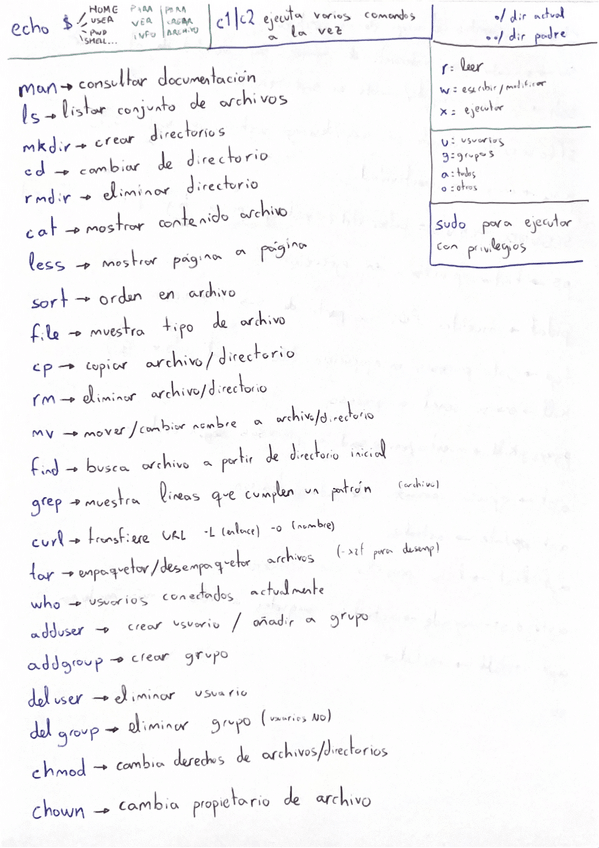 echo $ HOME USER PWD SHELL...
PARA VER INFO
PARA CREAR ARCHIVO
c1|c2 ejecuta varios comandos a la vez
./ dir actual
../ dir padre
r: leer
w: escribir/modificar
x: ejecutar
u: usuarios
g: grupos
a: todos
o: otros
sudo para ejecutar
con privilegios
man → consultar documentación
ls → listar conjunto de archivos
mkdir → crear directorios
cd → cambiar de directorio
rmdir → eliminar directorio
cat → mostrar contenido archivo
less → mostrar página a página
sort → orden en archivo
file → muestra tipo de archivo
cp → copiar archivo/directorio
rm → eliminar archivo/directorio
mv → mover/cambiar nombre a archivo/directorio
find → busca archivo a partir de directorio inicial
grep → muestra lineas que cumplen un patrón (archivo)
curl → transfiere URL -L (enlace) -o (nombre)
tar → empaquetar/desempaquetar archivos (-xzf para desemp)
who → usuarios conectados actualmente
adduser → crear usuario / añadir a grupo
addgroup → crear grupo
deluser → eliminar usuario
delgroup → eliminar grupo (usuarios NO)
chmod → cambia derechos de archivos/directorios
chown → cambia propietario de archivo